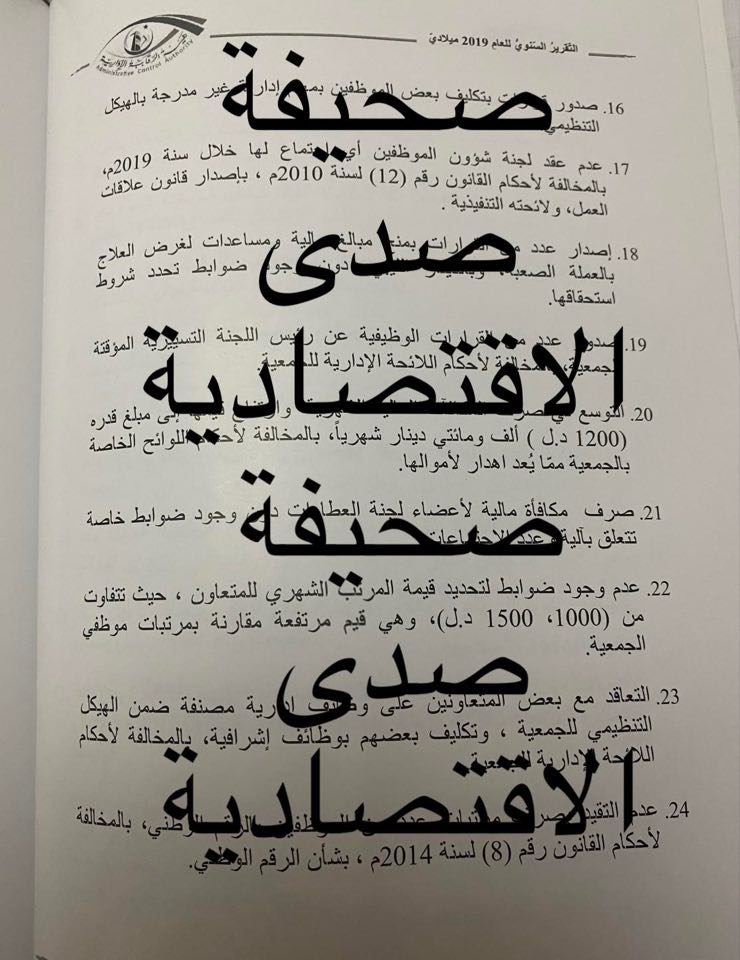 التقرير السنوي للعام 2019 ميلادي
هيئة الرقابة الإدارية
Administrative Control Authority
16. صدور بتكليف بعض الموظفين إدارية غير مدرجة بالهيكل
التنظيمي
17. عدم عقد لجنة شؤون الموظفين أي اجتماع لها خلال سنة 2019م،
بالمخالفة لأحكام القانون رقم (12) لسنة 2010م ، بإصدار قانون علاقات
العمل، ولائحته التنفيذية .
18. إصدار عدد من القرارات بمنح مبالغ مالية ومساعدات لغرض العلاج
بالعملة الصعبة، دون وجود ضوابط تحدد شروط
استحقاقها.
19. صدور عدد من القرارات الوظيفية عن رئيس اللجنة التسييرية المؤقتة
للجمعية، بالمخالفة لأحكام اللائحة الإدارية للجمعية
20. التوسع في صرف إلى مبلغ قدره
(1200 د.ل ) ألف ومائتي دينار شهرياً، بالمخالفة لأحكام اللوائح الخاصة
بالجمعية ممّا يُعد اهدار لأموالها.
21. صرف مكافأة مالية لأعضاء لجنة العطاءات دون وجود ضوابط خاصة
تتعلق بآلية وعدد الاجتماعات
22. عدم وجود ضوابط لتحديد قيمة المرتب الشهري للمتعاون ، حيث تتفاوت
من (1000، 1500 د.ل)، وهي قيم مرتفعة مقارنة بمرتبات موظفي
الجمعية.
23. التعاقد مع بعض المتعاونين على وظائف إدارية مصنفة ضمن الهيكل
التنظيمي للجمعية ، وتكليف بعضهم بوظائف إشرافية، بالمخالفة لأحكام
اللائحة الإدارية للجمعية
24. عدم التقيد الرقم الوطني، بالمخالفة
لأحكام القانون رقم (8) لسنة 2014م ، بشأن الرقم الوطني.
صحيفة
صدى
الاقتصادية
صحيفة
صدى
الاقتصادية